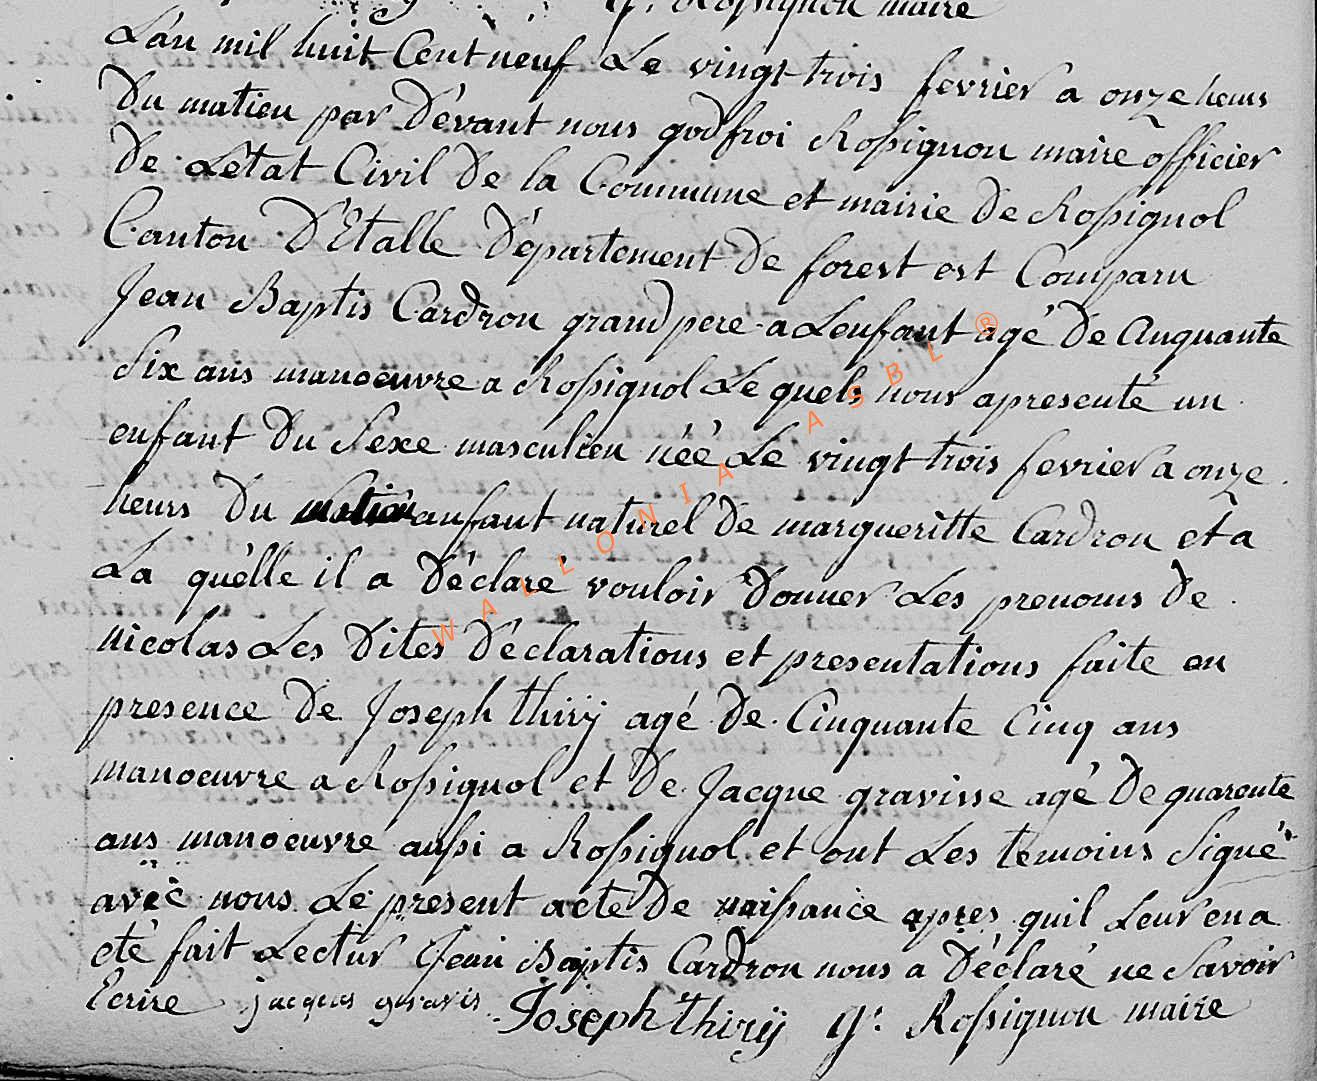 g. Rossignon maire
L'an mil huit Cent neuf Le vingt trois fevrier a onze heurs
Du matieu par Dévant nous godfroi Rossignon maire officier
De L'etat Civil De la Commune et mairie De Rossignol
Canton D'Etalle Département De forest est Comparu
Jean Baptis Cardron grand pere a Lenfant agé De Cinquante
Six ans manoeuvre a Rossignol Le quels nous apresenté un
enfant Du Sexe masculien néé Le vingt trois fevrier a onze
heurs Du matien anfant naturel De margueritte Cardron et a
La quélle il a Déclaré vouloir Donner Les prenoms De
nicolas Les Dites Déclarations et presentations faite en
presence De Joseph thirÿ agé De Cinquante Cinq ans
manoeuvre a Rossignol et De Jacque gravisse agé De quarente
ans manoeuvre aussi a Rossignol et ont Les temoins Signé
avéc nous Le present acte De naissance apres quil Leur en a
eté fait Lectur Jean Baptis Cardron nous a Déclaré ne Savoir
Ecrire jacques gravis Joseph thirÿ g. Rossignon maire
WALLONIA ASBL ®